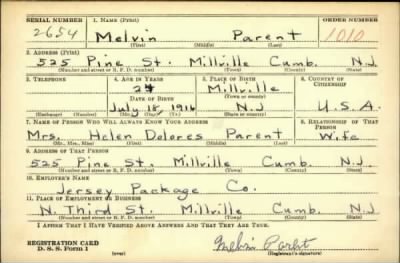 SERIAL NUMBER 1. NAME (Print) ORDER NUMBER
2654 Melvin Parent 1010
(First) (Middle) (Last)
2. ADDRESS (Print)
525 Pine St. Millville Cumb. N.J.
(Number and street or R. F. D. number) (Town) (County) (State)
3. TELEPHONE 4. AGE IN YEARS 5. PLACE OF BIRTH 6. COUNTRY OF CITIZENSHIP
24 Millville
DATE OF BIRTH (Town or county)
July 18, 1916 N.J U.S.A.
(Exchange) (Number) (Mo.) (Day) (Yr.) (State or country)
7. NAME OF PERSON WHO WILL ALWAYS KNOW YOUR ADDRESS 8. RELATIONSHIP OF THAT PERSON
Mrs. Helen Dolores Parent Wife
(Mr., Mrs., Miss) (First) (Middle) (Last)
9. ADDRESS OF THAT PERSON
525 Pine St. Millville Cumb. N.J.
(Number and street or R. F. D. number) (Town) (County) (State)
10. EMPLOYER'S NAME
Jersey Package Co.
11. PLACE OF EMPLOYMENT OR BUSINESS
N. Third St. Millville Cumb. N.J.
(Number and street or R. F. D. number) (Town) (County) (State)
I AFFIRM THAT I HAVE VERIFIED ABOVE ANSWERS AND THAT THEY ARE TRUE.
REGISTRATION CARD
D. S. S. Form 1 (over) (Registrant's signature)